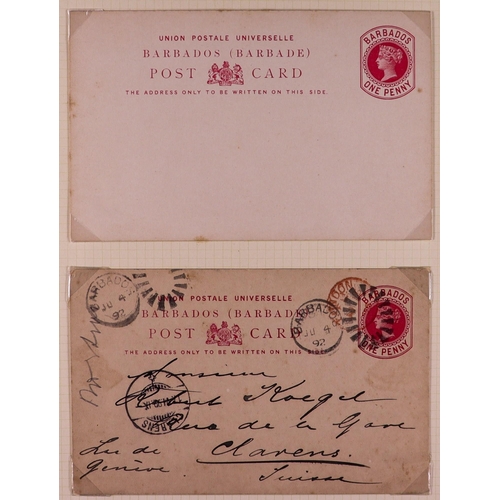 UNION POSTALE UNIVERSELLE
BARBADOS (BARBADE)
POST CARD
THE ADDRESS ONLY TO BE WRITTEN ON THIS SIDE.
BARBADOS
ONE PENNY
BARBADOS
JU 4
92
UNION POSTALE UNIVERSELLE
BARBADOS (BARBADE)
POST CARD
THE ADDRESS ONLY TO BE WRITTEN ON THIS SIDE.
BARBADOS
JU 4
92
LONDON
BARBADOS
ONE PENNY
Monsieur
Koegel
de la Gare
Clarens.
Lac de
Genève
Suisse
CLARENS